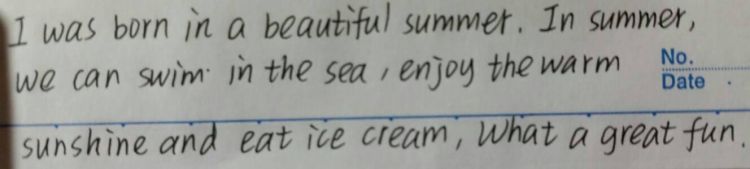 I was born in a beautiful summer. In summer,
we can swim in the sea, enjoy the warm
No.
Date
sunshine and eat ice cream, What a great fun.